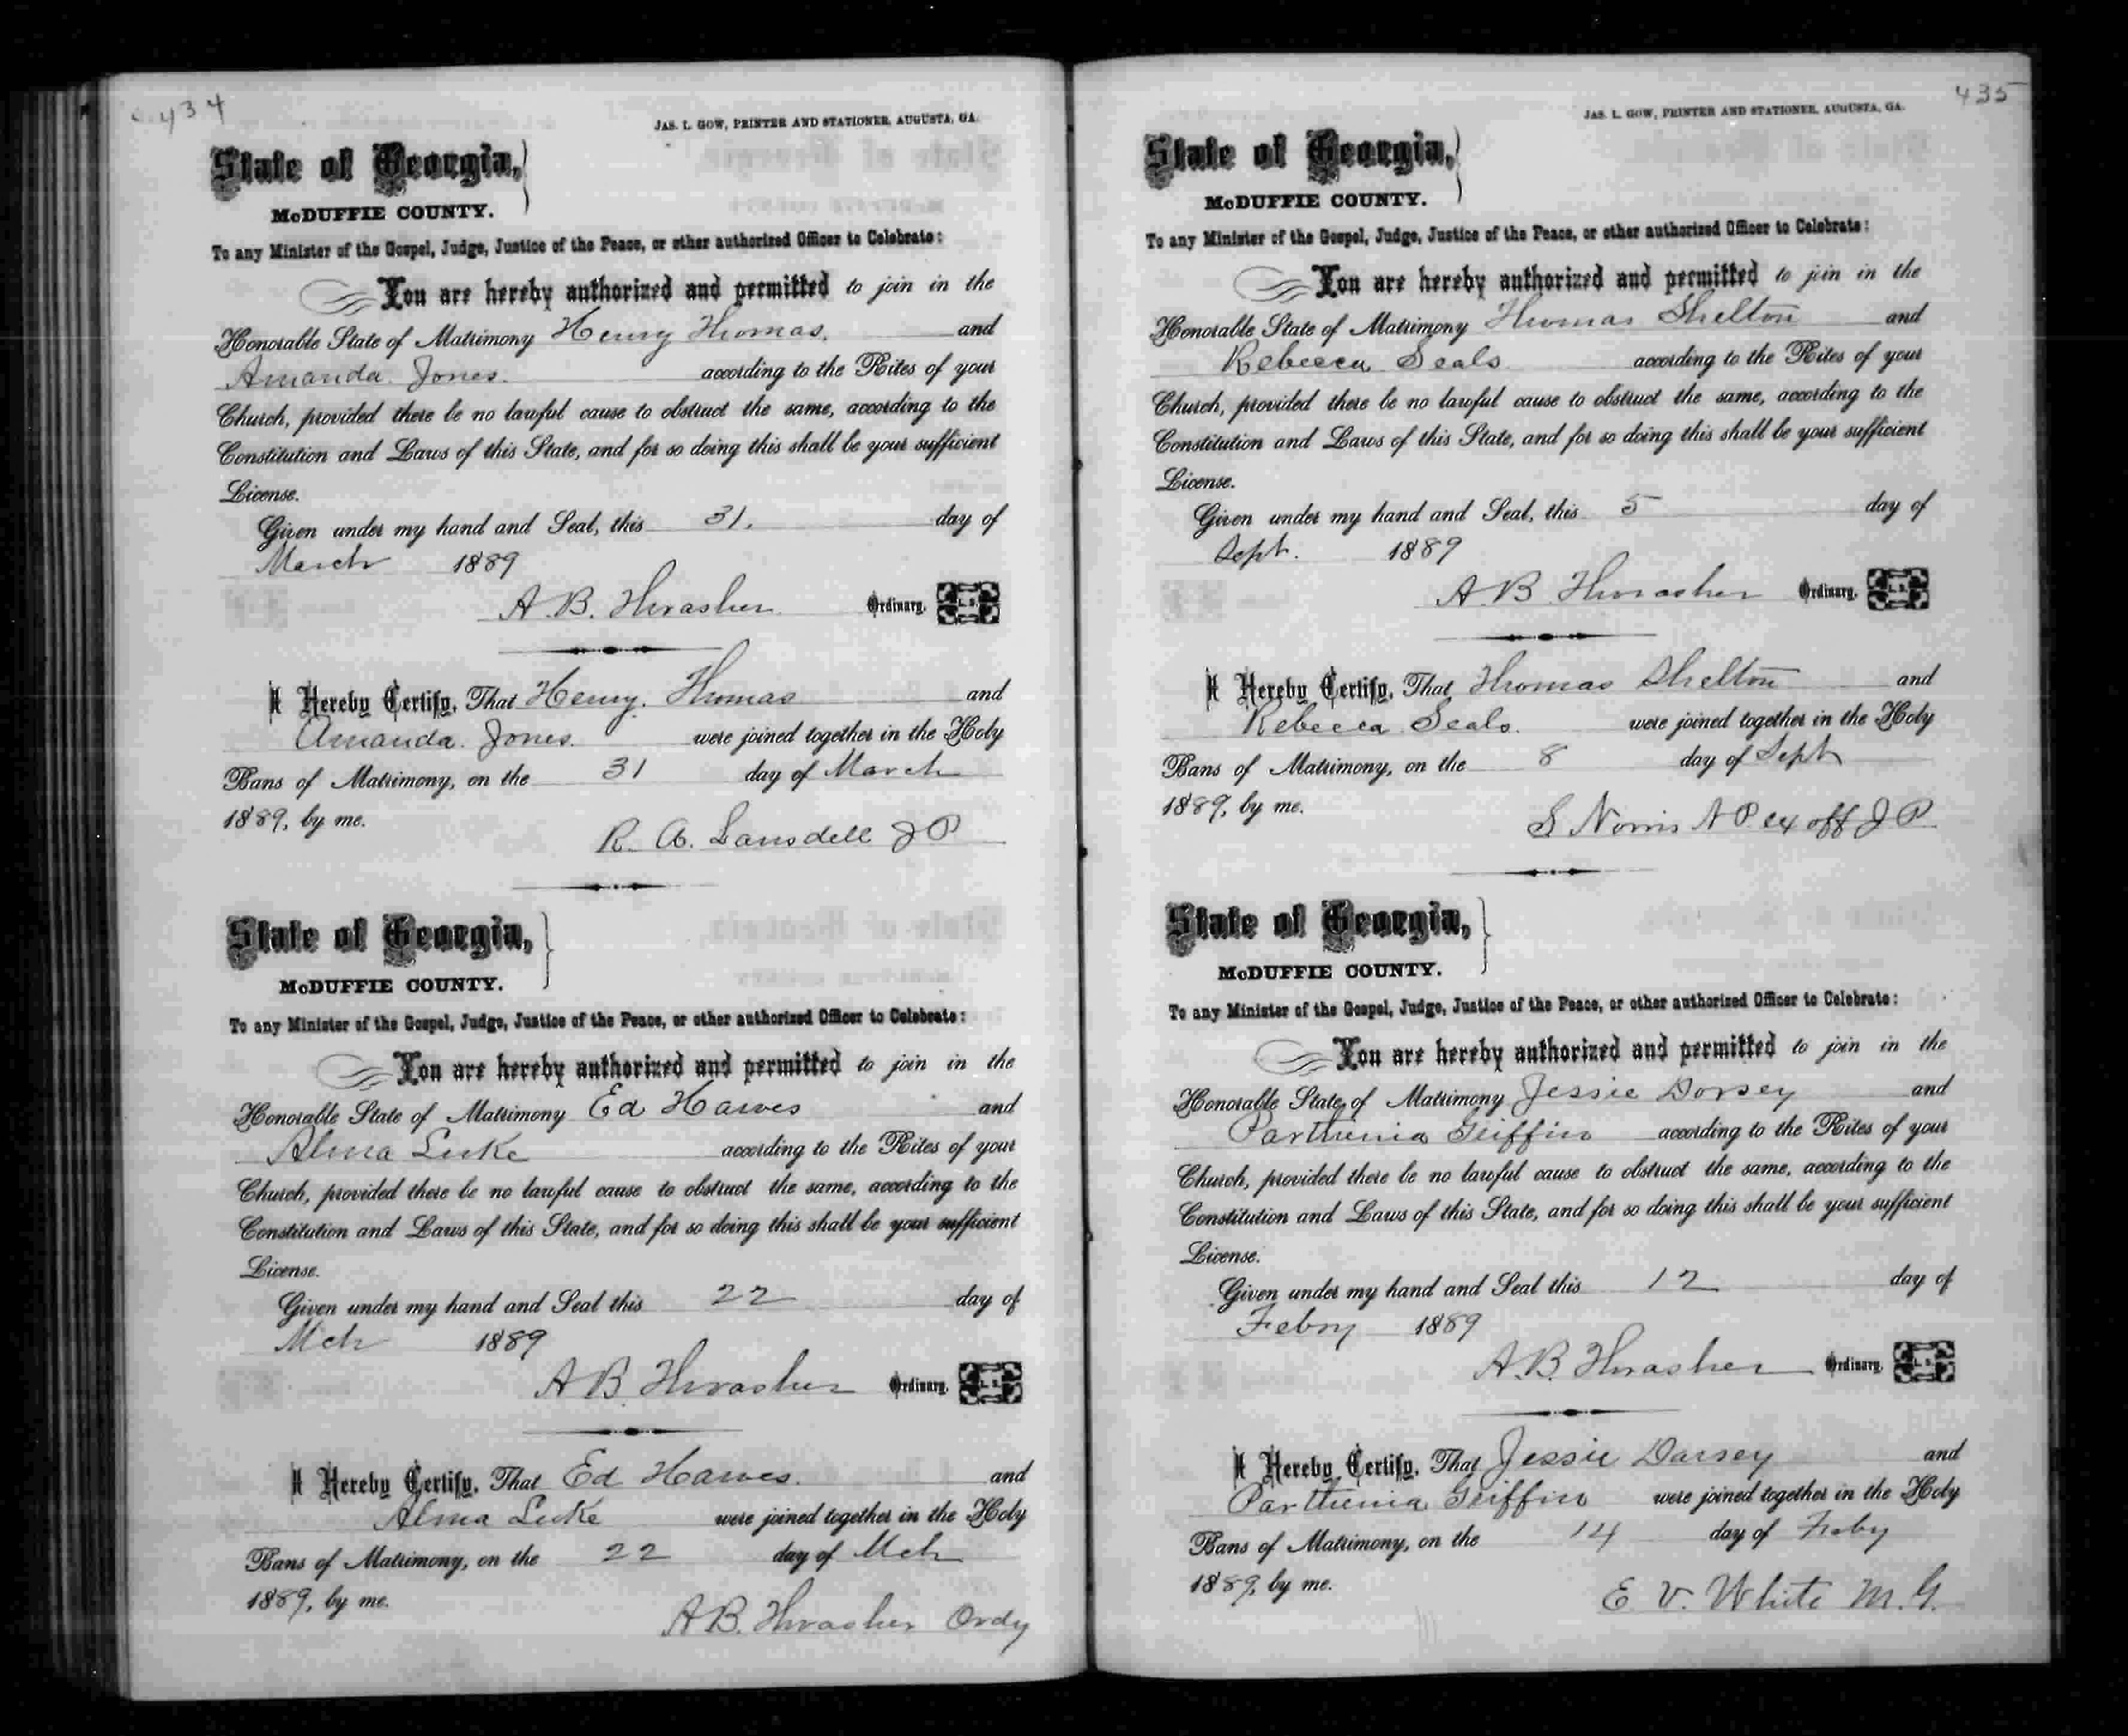 434
JAS. L. GOW, PRINTER AND STATIONER, AUGUSTA, GA.
State of Georgia,
McDUFFIE COUNTY.
To any Minister of the Gospel, Judge, Justice of the Peace, or other authorized Officer to Celebrate:
You are hereby authorized and permitted to join in the
Honorable State of Matrimony Henry Thomas. and
Amanda Jones. according to the Rites of your
Church, provided there be no lawful cause to obstruct the same, according to the
Constitution and Laws of this State, and for so doing this shall be your sufficient
License.
Given under my hand and Seal, this 31. day of
March 1889
A. B. Thrasher Ordinary. L. S.
I Hereby Certify, That Henry Thomas and
Amanda Jones. were joined together in the Holy
Bans of Matrimony, on the 31 day of March
1889, by me.
R. A. Lansdell J P
State of Georgia,
McDUFFIE COUNTY.
To any Minister of the Gospel, Judge, Justice of the Peace, or other authorized Officer to Celebrate:
You are hereby authorized and permitted to join in the
Honorable State of Matrimony Ed Hawes and
Alma Luke according to the Rites of your
Church, provided there be no lawful cause to obstruct the same, according to the
Constitution and Laws of this State, and for so doing this shall be your sufficient
License.
Given under my hand and Seal this 22 day of
Mch 1889
A B Thrasher Ordinary. L. S.
I Hereby Certify, That Ed Hawes. and
Alma Luke were joined together in the Holy
Bans of Matrimony, on the 22 day of Mch
1889, by me.
A B. Thrasher Ordy
435
JAS. L. GOW, PRINTER AND STATIONER, AUGUSTA, GA.
State of Georgia,
McDUFFIE COUNTY.
To any Minister of the Gospel, Judge, Justice of the Peace, or other authorized Officer to Celebrate:
You are hereby authorized and permitted to join in the
Honorable State of Matrimony Thomas Shelton and
Rebecca Seals according to the Rites of your
Church, provided there be no lawful cause to obstruct the same, according to the
Constitution and Laws of this State, and for so doing this shall be your sufficient
License.
Given under my hand and Seal, this 5 day of
Sept. 1889
A. B Thrasher Ordinary. L. S.
I Hereby Certify, That Thomas Shelton and
Rebecca Seals. were joined together in the Holy
Bans of Matrimony, on the 8 day of Sept
1889, by me.
S Norris N P ex off J P
State of Georgia,
McDUFFIE COUNTY.
To any Minister of the Gospel, Judge, Justice of the Peace, or other authorized Officer to Celebrate:
You are hereby authorized and permitted to join in the
Honorable State of Matrimony Jessie Dorsey and
Parthenia Griffin according to the Rites of your
Church, provided there be no lawful cause to obstruct the same, according to the
Constitution and Laws of this State, and for so doing this shall be your sufficient
License.
Given under my hand and Seal this 12 day of
Febry 1889
A. B. Thrasher Ordinary. L. S.
I Hereby Certify, That Jessie Darsey and
Parthenia Griffin were joined together in the Holy
Bans of Matrimony, on the 14 day of Feby
1889, by me.
E. V. White M. G.